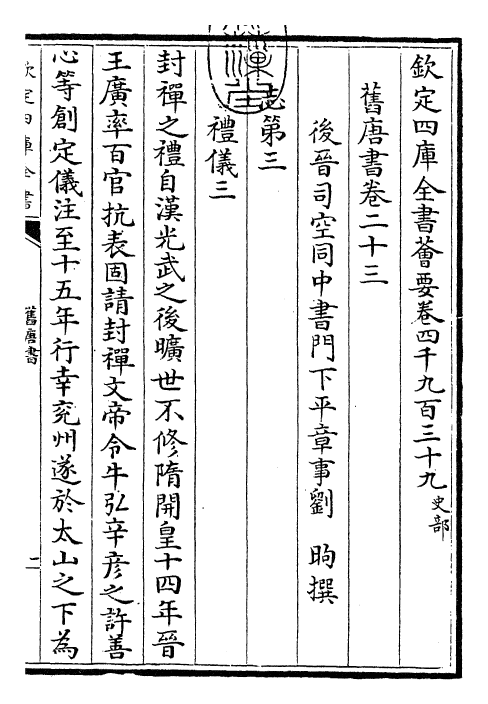 欽定四庫全書薈要卷四千九百三十九史部
舊唐書卷二十三
後晉司空同中書門下平章事劉昫撰
志第三
禮儀三
封禪之禮自漢光武之後曠世不修隋開皇十四年晉
王廣率百官抗表固請封禪文帝令牛弘辛彦之許善
心等創定儀注至十五年行幸兖州遂於太山之下為
欽定四庫全書
舊唐書